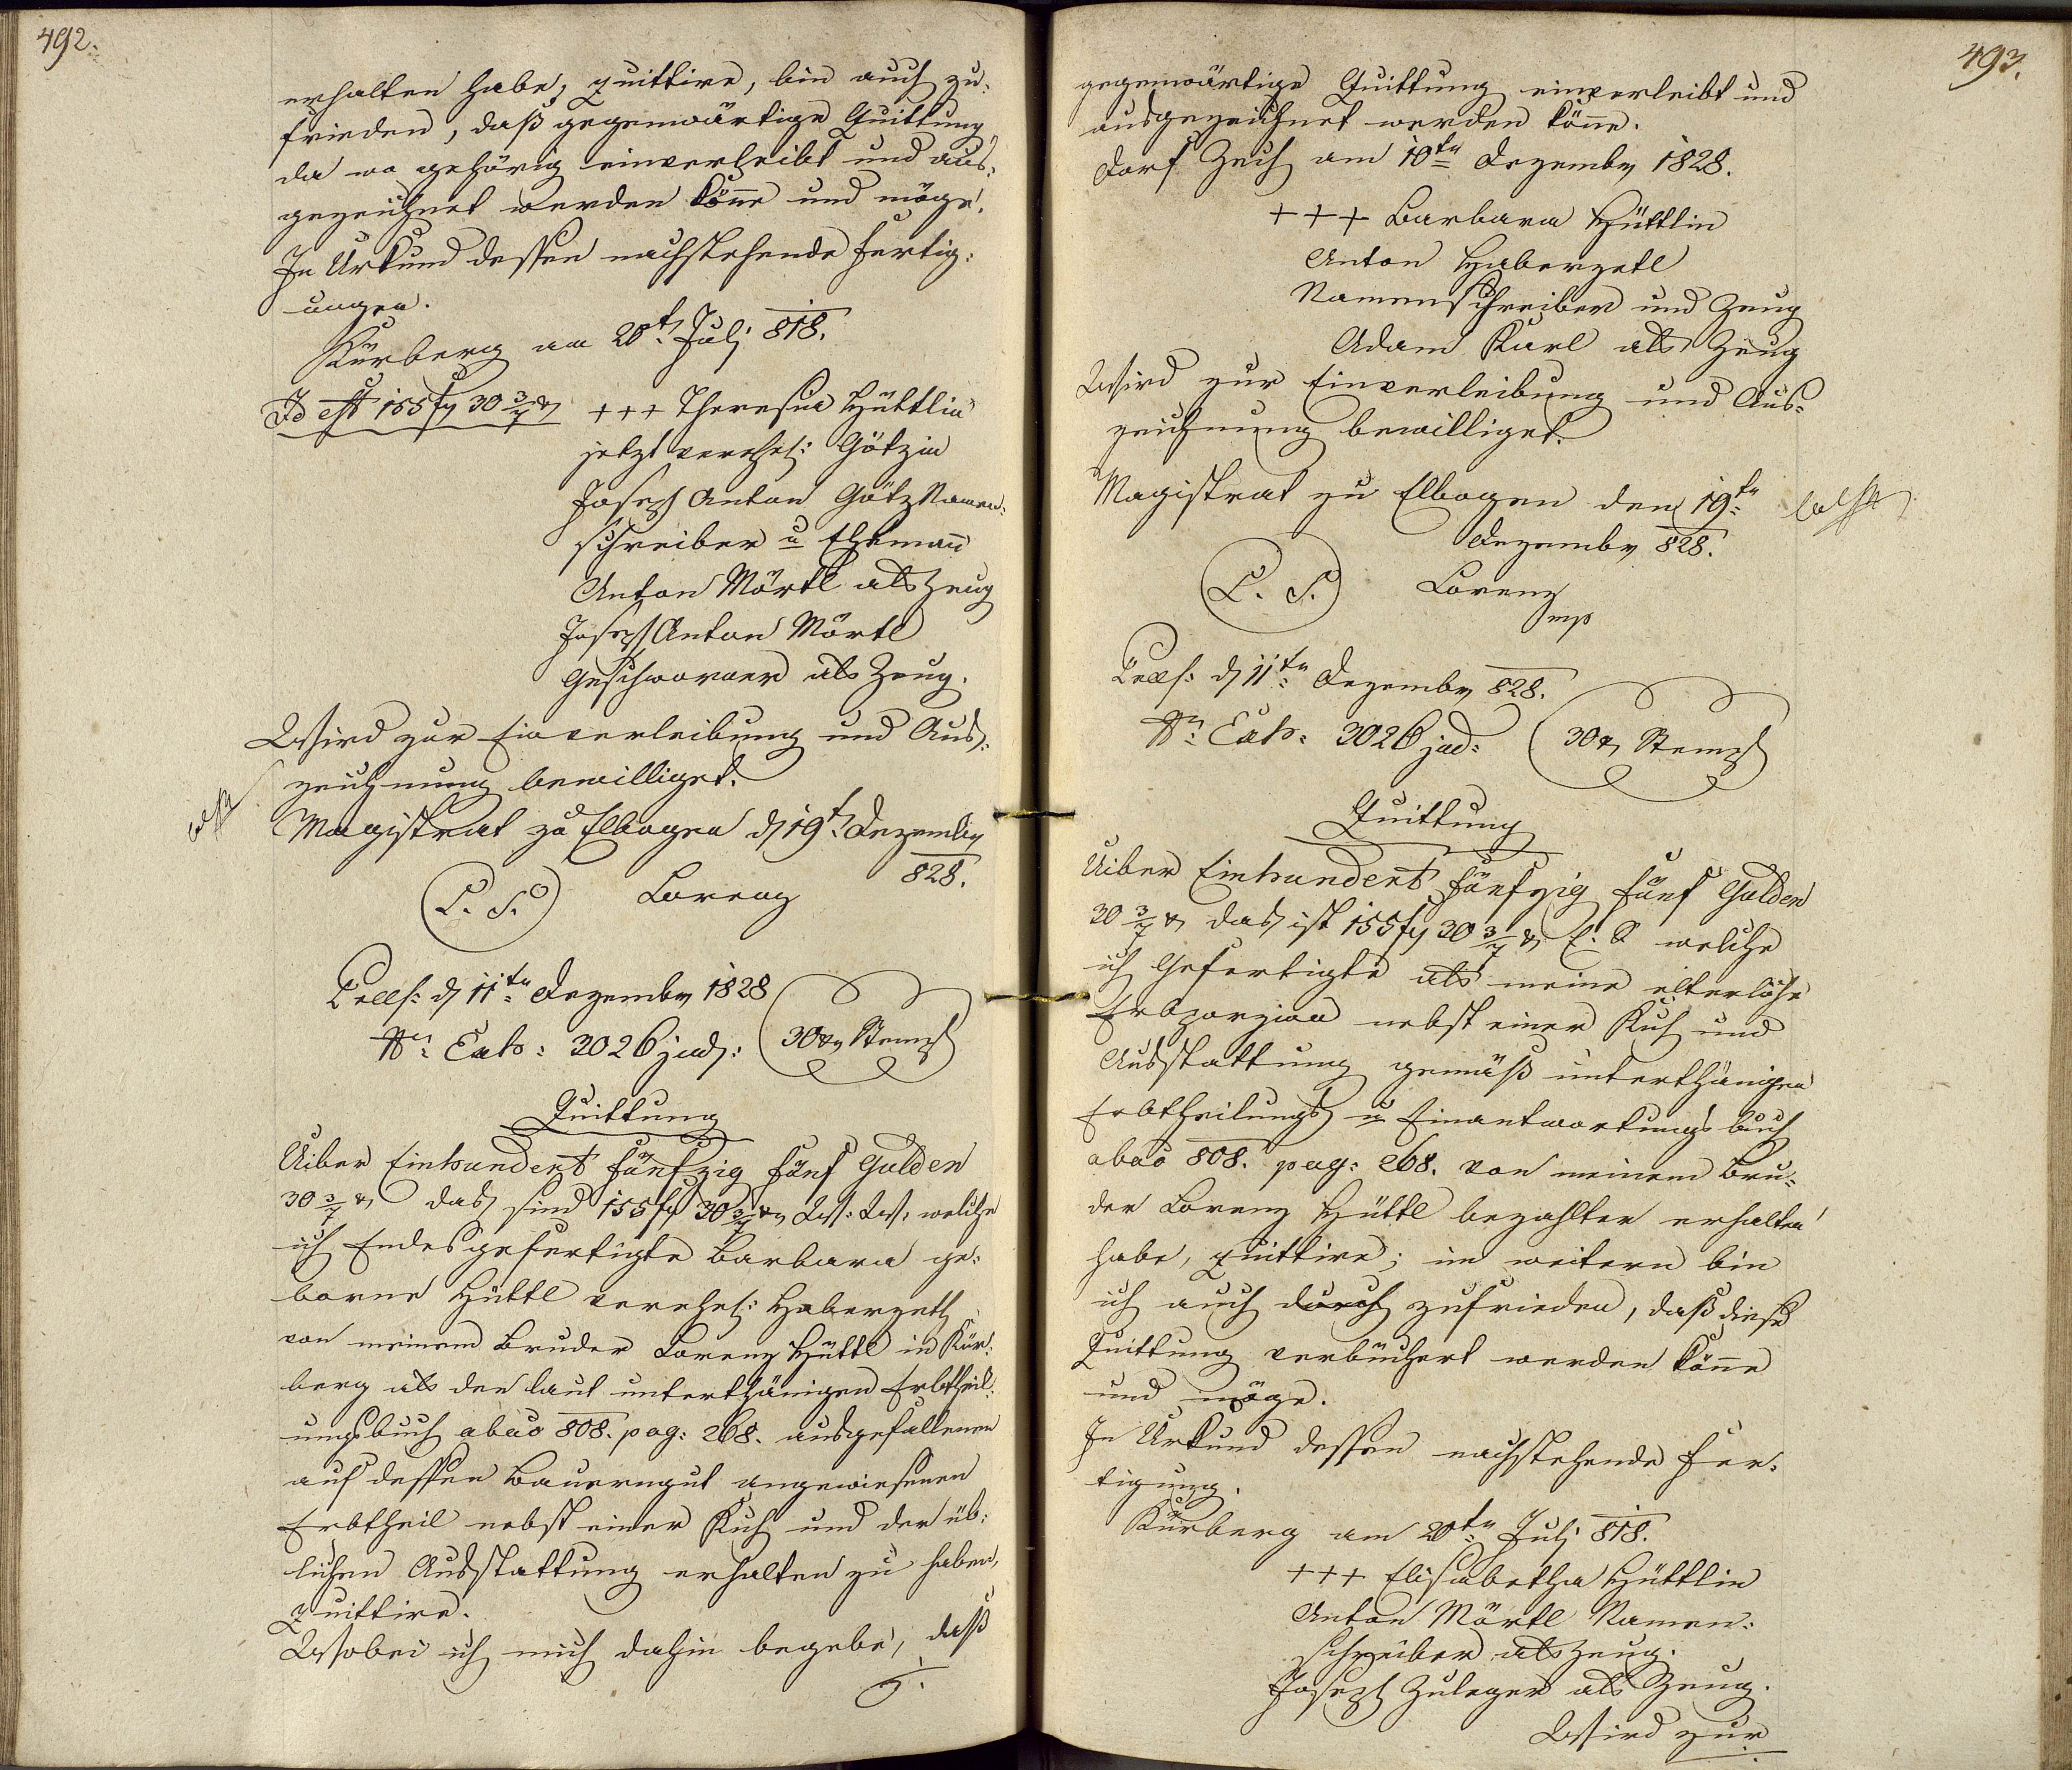 492.
erhalten habe, quittire, bin auch zu-
frieden, daß gegenwärtige Quittung
da wo gehörig einverleibt und aus-
gezeichnet werden könne und möge.
In Urkund dessen nachstehende Fertig-
ungen.
Kürberg am 20t. Juli 818.
Id est 155 fl 30 3/7 xr
+++ Theresia Hüttlin
jetzt verehel: Götzin
Joseph Anton Götz Namen-
schreiber u Ehemann
Anton Mörtl als Zeug
Joseph Anton Mörtl
Geschworner als Zeug.
Wird zur Einverleibung und Aus-
zeichnung bewilliget.
Magistrat zu Elbogen d 19t. Dezember
828.
L. S. Lorenz
Präs: d 11ten Dezember 1828
Nr. Exh: 3026 jud: 30 xr Stempl
Quittung
Uiber Einhundert fünfzig fünf Gulden
30 3/7 xr das sind 155 fl 30 3/7 xr W: W: welche
ich Endesgefertigte Barbara ge-
borne Hüttl verehel: Haberzetl
von meinem Bruder Lorenz Hüttl in Kür-
berg als den laut unterthänigen Erbtheil-
ungsbuch abao 808. pag: 268. ausgefallenen
auf dessen Bauerngut angewiesenen
Erbtheil nebst einer Kuh und der üb-
lichen Ausstattung erhalten zu haben,
quittire.
Wobei ich mich dahin begebe, daß
g.
493.
gegenwärtige Quittung einverleibt und
ausgezeichnet werden könne.
Dorf Zech am 10ten Dezember 1828.
+++ Barbara Hüttlin
Anton Haberzetl
Namenschreiber und Zeug
Adam Karl als Zeug
Wird zur Einverleibung und Aus-
zeichnung bewilliget.
Magistrat zu Elbogen den 19ten
Dezember 828.
L. S. Lorenz
mp
Präs: d 11ten Dezember 828.
Nr. Exh: 3026 jud: 30 xr Stempl
Quittung
Uiber Einhundert fünfzig fünf Gulden
30 3/7 xr das ist 155 fl 30 3/7 xr E. S. welche
ich Gefertigte als meine elterliche
Erbporzion nebst einer Kuh und
Ausstattung gemäß unterthänigen
Erbtheilungs u Einantwortungsbuch
abao 808. pag: 268. von meinem Bru-
der Lorenz Hüttl bezahlter erhalten
habe, quittire; im weitern bin
ich auch durch zufrieden, daß diese
Quittung verbüchert werden könne
und möge.
In Urkund dessen nachstehende Fer-
tigung.
Kürberg am 20ten Juli 818.
+++ Elisabetha Hüttlin
Anton Mörtl Namen-
schreiber als Zeug.
Joseph Zuleger als Zeug.
Wird zur